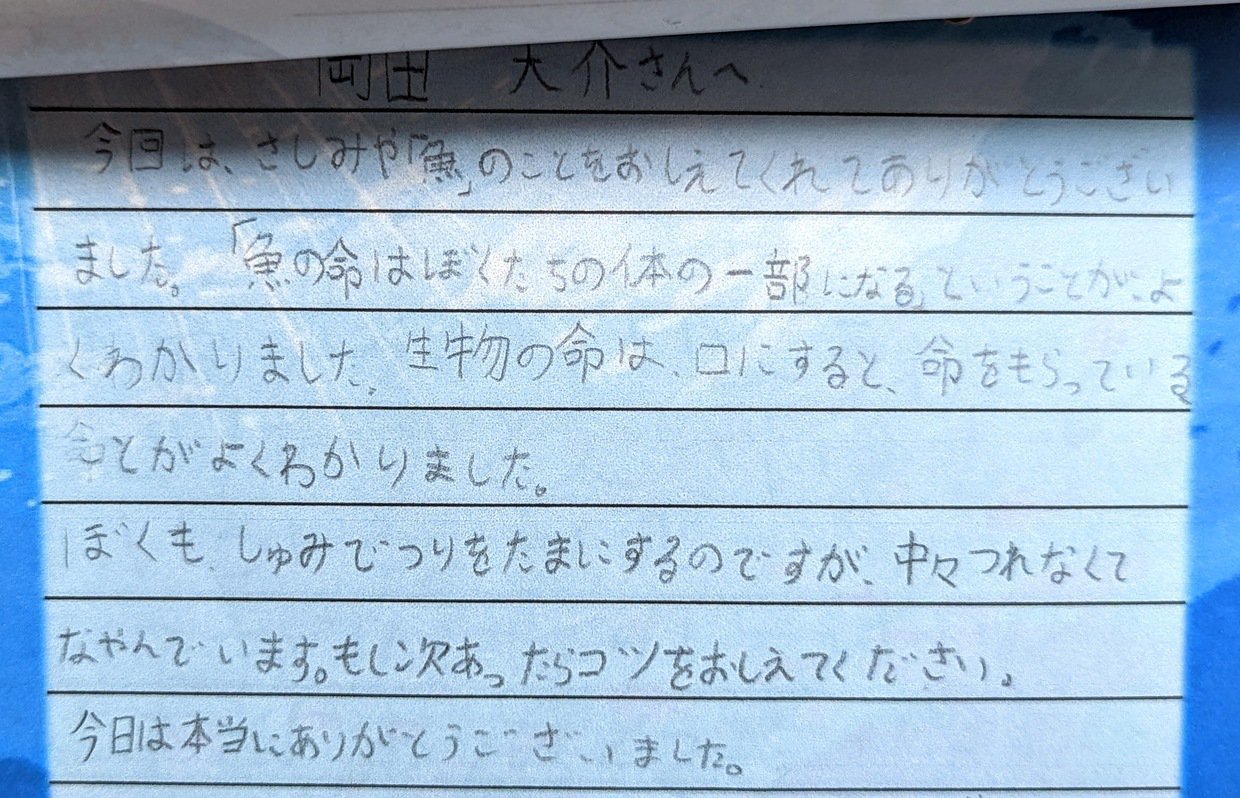 岡田 大介さんへ
今回は、さしみや「魚」のことをおしえてくれてありがとうござい
ました。「魚の命はぼくたちの体の一部になる」ということが、よ
くわかりました。生物の命は、口にすると、命をもらっている
ことがよくわかりました。
ぼくも しゅみでつりをたまにするのですが、中々つれなくて
なやんでいます。もし次あったらコツをおしえてください。
今日は本当にありがとうございました。